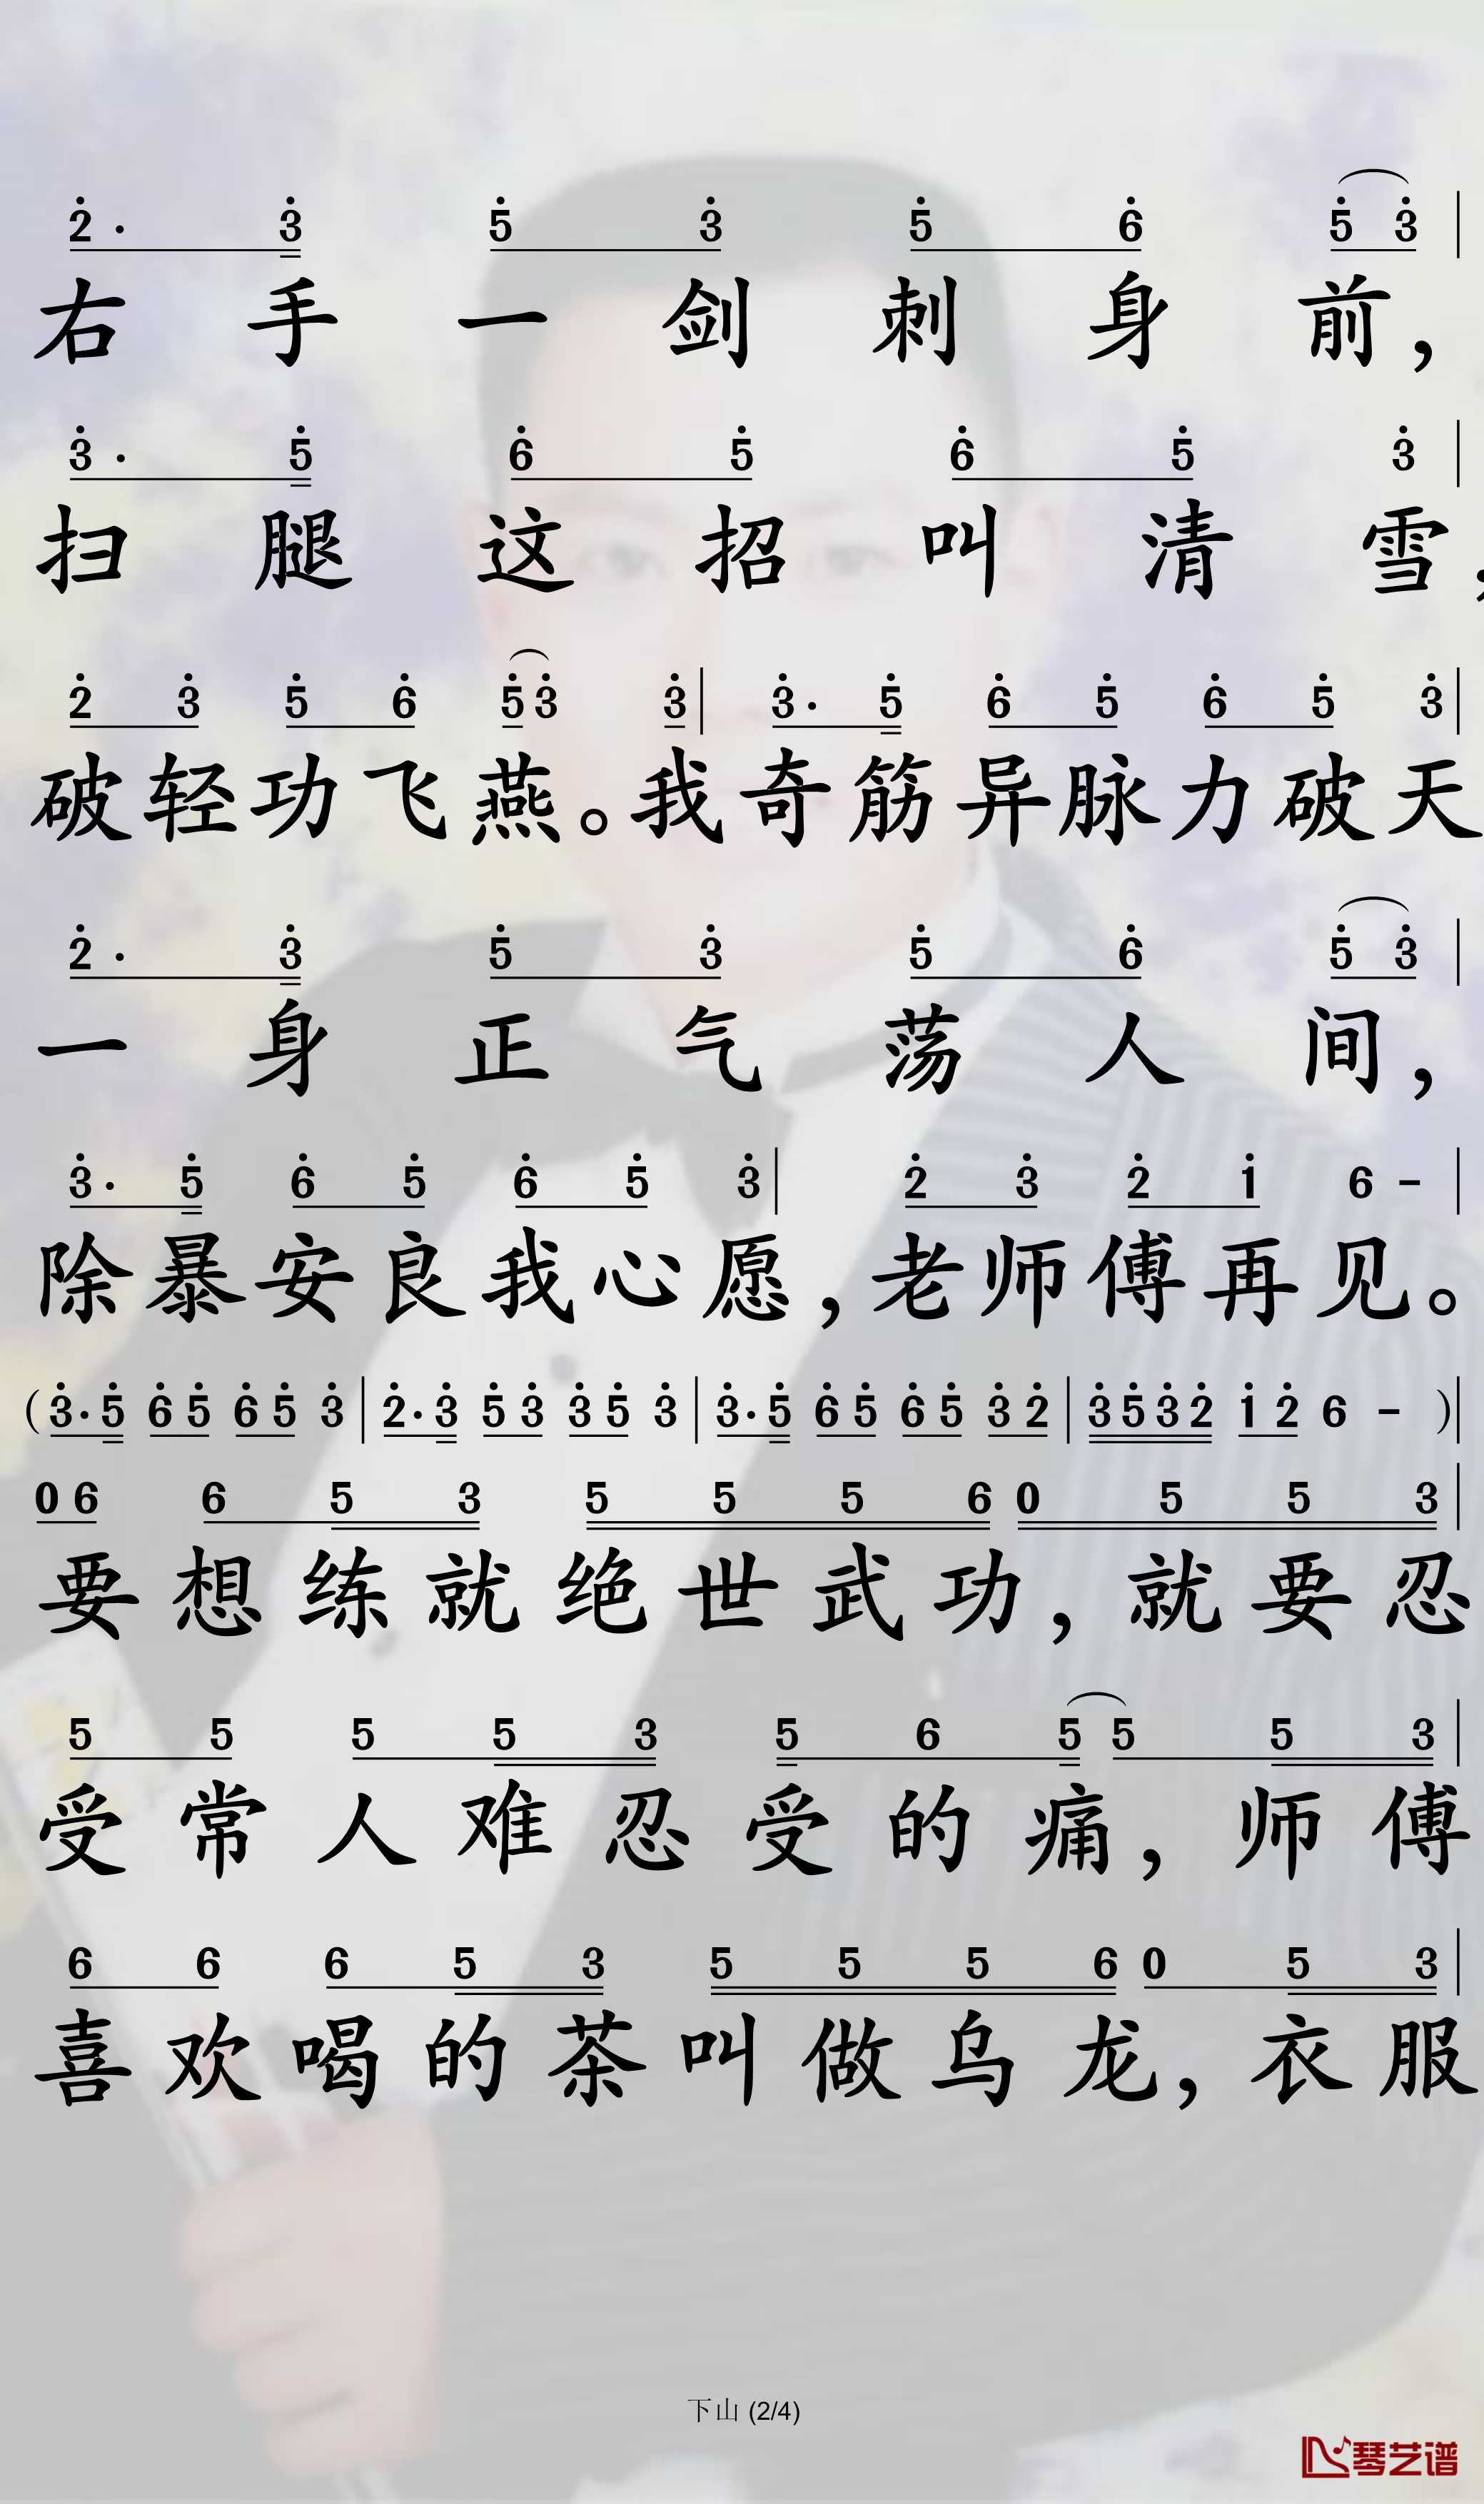 2· 3 5 3 5 6 5 3 |
右手一剑刺身前，
3· 5 6 5 6 5 3 |
扫腿这招叫清雪，
2 3 5 6 5 3 3 | 3· 5 6 5 6 5 3 |
破轻功飞燕。我奇筋异脉力破天
2· 3 5 3 5 6 5 3 |
一身正气荡人间，
3· 5 6 5 6 5 3 | 2 3 2 1 6 - |
除暴安良我心愿，老师傅再见。
(3· 5 6 5 6 5 3 | 2· 3 5 3 3 5 3 | 3· 5 6 5 6 5 3 2 | 3 5 3 2 1 2 6 - )|
0 6 6 5 3 5 5 5 6 0 5 5 3 |
要想练就绝世武功，就要忍
5 5 5 5 3 5 6 5 5 5 3 |
受常人难忍受的痛，师傅
6 6 6 5 3 5 5 5 6 0 5 3 |
喜欢喝的茶叫做乌龙，衣服
下山 (2/4)
琴艺谱